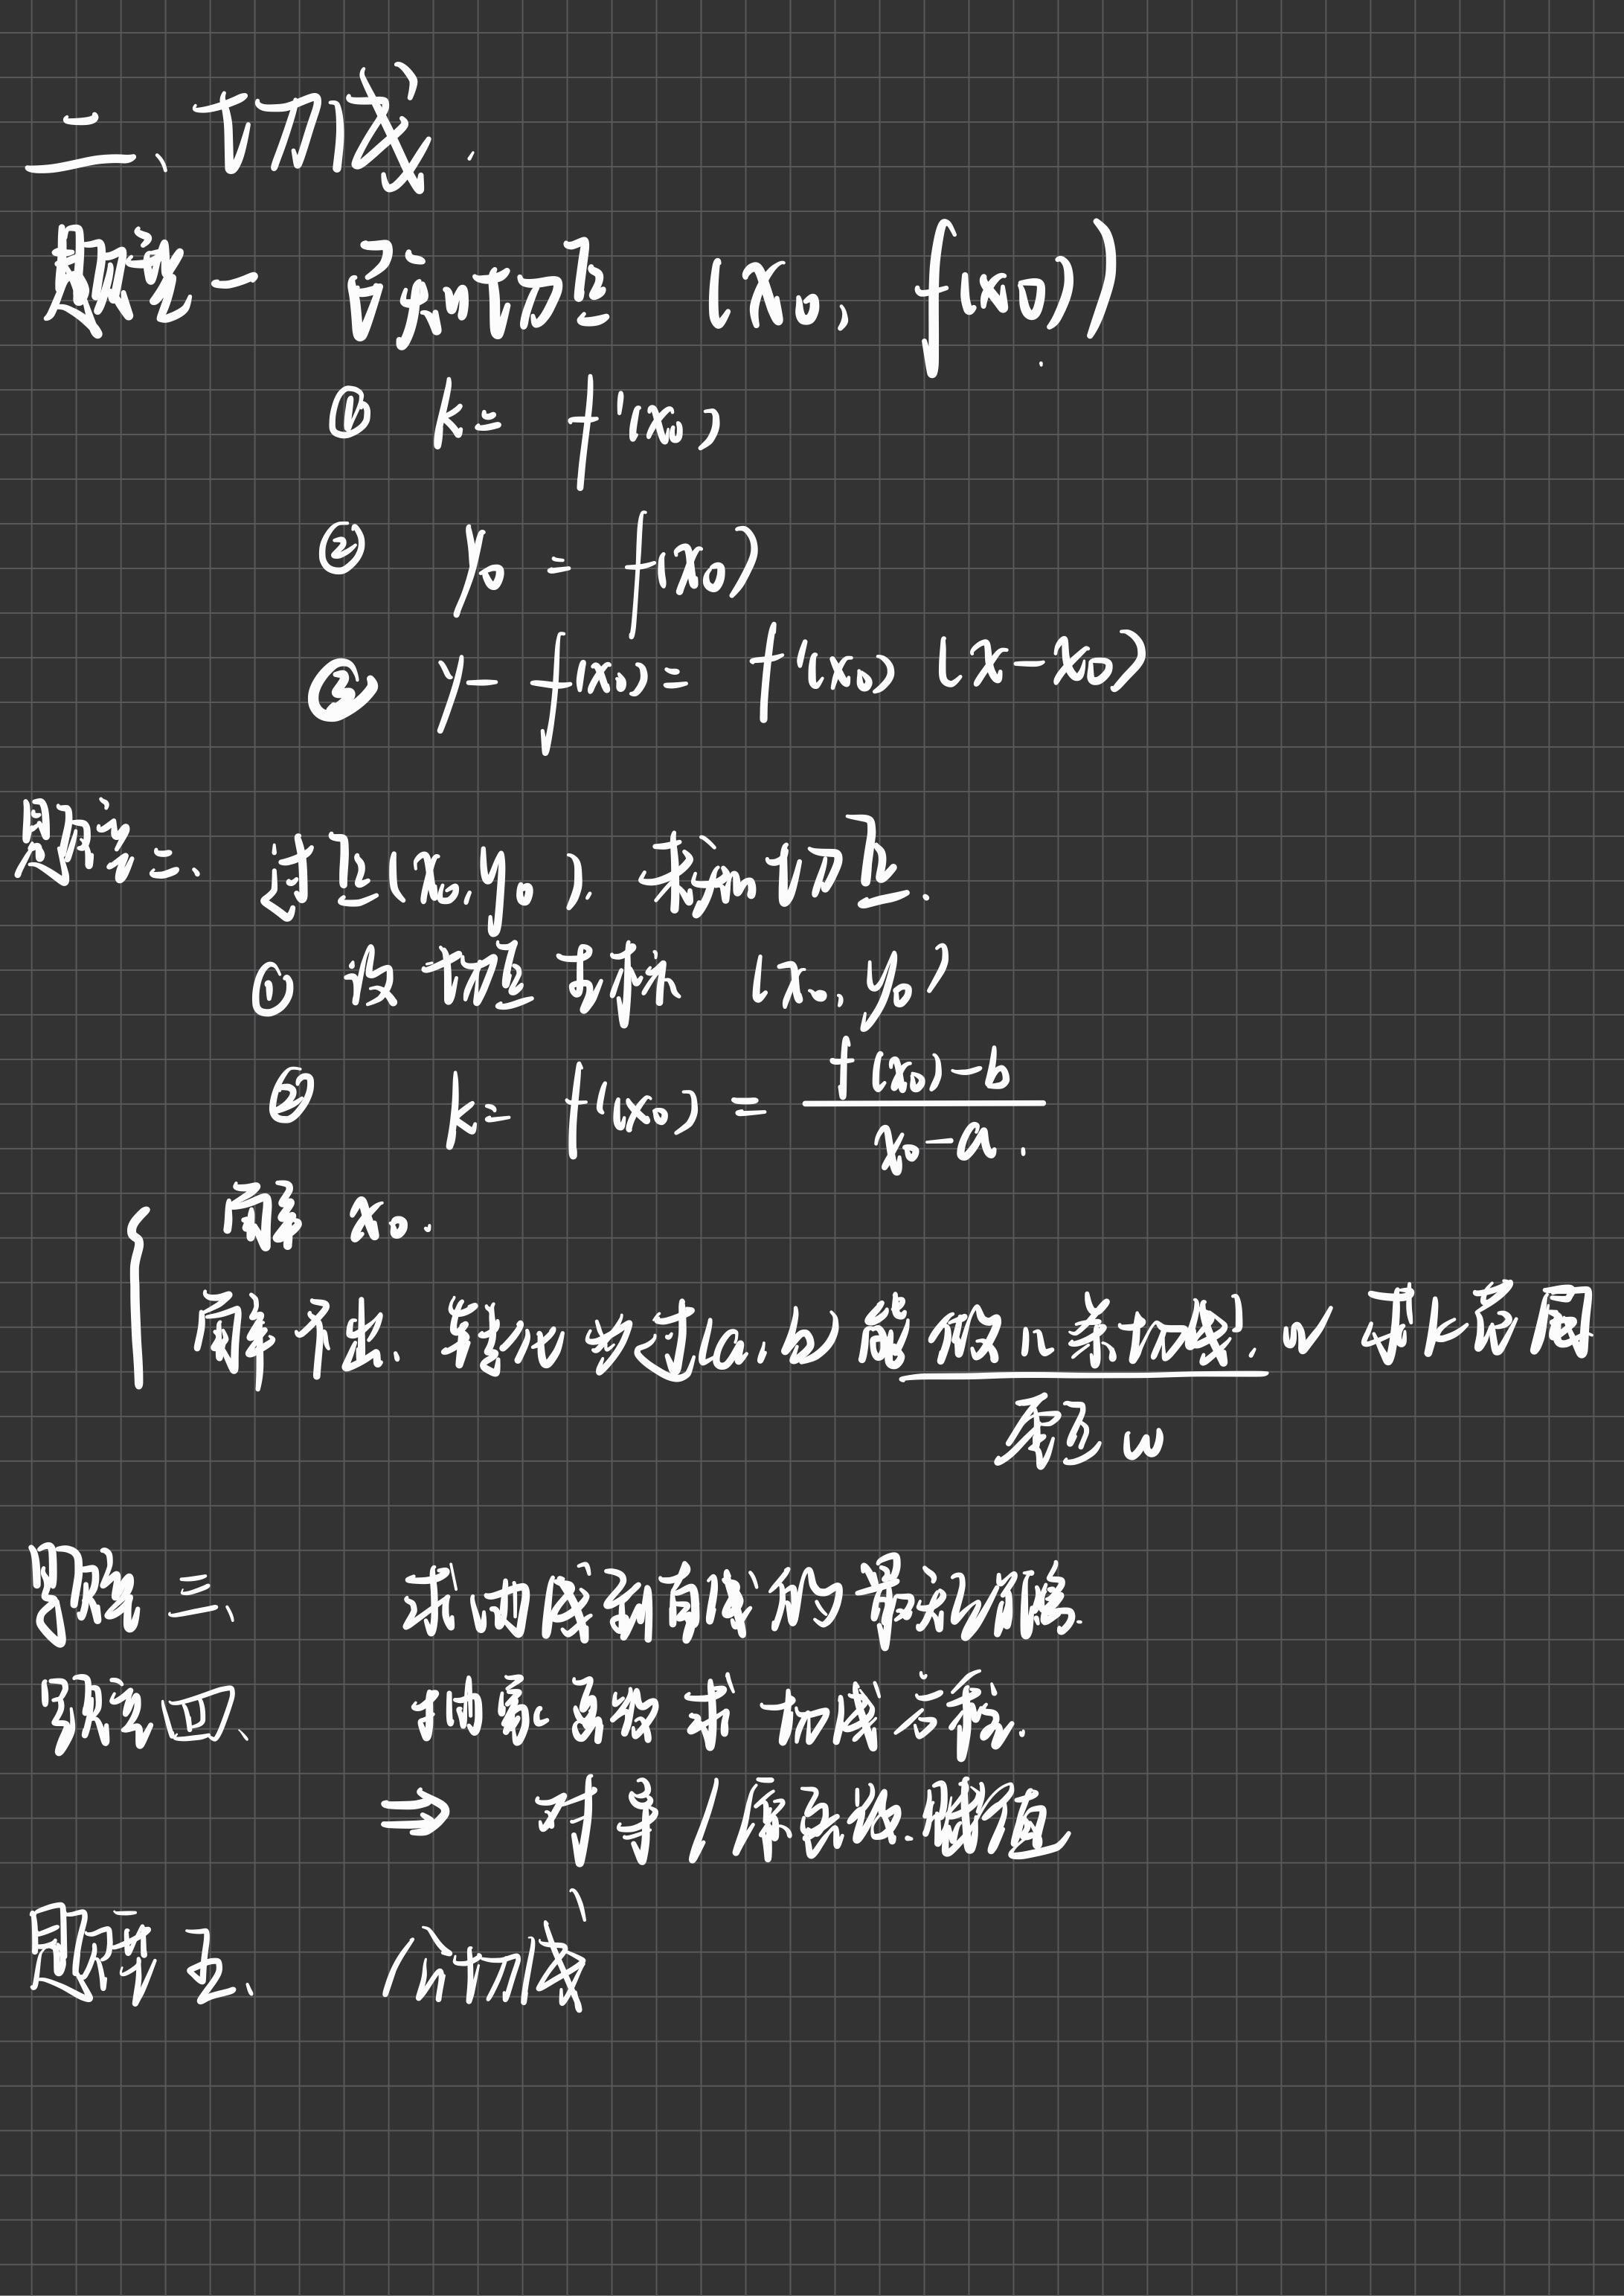 二、切线.
题型一 已知切点 (x₀, f(x₀))
① k = f'(x₀)
② y₀ = f(x₀)
③ y - f(x₀) = f'(x₀)(x - x₀)
题型二、过点(x₀, y₀), 求知切点.
① 设切点坐标 (x₀, y₀)
② k = f'(x₀) = \frac{f(x₀) - b}{x₀ - a}.
解 x₀.
解不出. 转化为过(a, b)能做n条切线. 求k范围
零点
题型三、 求曲线到直线的最短距离.
题型四、 抽象函数求切线方程.
⇒ 对导/原函数赋值
题型五、 公切线